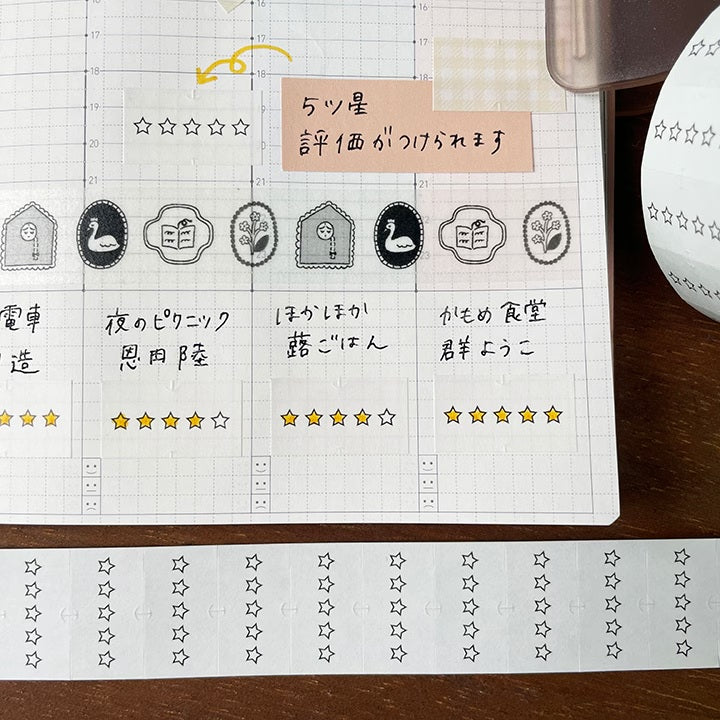 16
17
18
19
20
21
16
17
18
19
20
21
22
5ツ星
評価がつけられます
電車
造
夜のピクニック
恩田陸
ほかほか
蕗ごはん
かもめ食堂
群ようこ